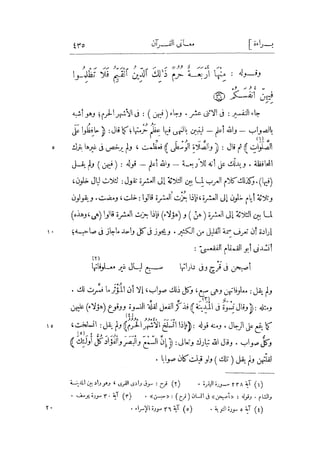 بـراءة ] معـانى القـرآن ٤٣٥
وقـوله : مِنْهَآ أَرْبَعَـةٌ حُرُمٌ ذَٰلِكَ ٱلدِّينُ ٱلْقَيِّمُ فَلَا تَظْلِمُـوا
فِيهِنَّ أَنفُسَكُمْ ﴿٣٦﴾
جاء التفسير : فى الاثنى عشر . وجاء ( فيهنّ ) : فى الأشهر الحرم؛ وهو أشبه
بالصواب — والله أعلم — ليتبين بالنهى فيها عِظَم حُرْمتها؛ كما قال: ﴿ حَافِظُوا عَلَى
٥ الصَّلَوَاتِ ﴾ ثم قال : ﴿ وَالصَّلَاةِ الْوُسْطَى ﴾ فعظّمت ، ولم يرخص فى غيرها بترك
المحافظة . ويدلّك على أنه للأربعـة — والله أعلم — قوله : ( فيهن ) ولم يقـل
(فيها). وكذلك كلام العرب لما بين الثلاثة إلى العشرة تقول: لثلاث ليال خلون،
وثلاثة أيام خلون إلى العشرة، فإذا جُزت العشرة قالوا: خلت، ومضت . ويقولون
لما بين الثلاثة إلى العشرة ( هنّ ) و (هؤلاء) فإذا جزت العشرة قالوا (هى، وهذه)
١٠ إرادة أن تعرف سمة القليل من الكثير . ويجوز فى كل واحد ماجاز فى صاحبـه؛
أنشدنى أبو القمقام الفقعسىّ:
أصبحن فى قُرْحَ وفى داراتها سـبع ليـال غير معـلوفاتها
ولم يقل: معلوفاتهن وهى سبع، وكل ذلك صواب، إلا أن المُؤْثَر ما فسّرت لك .
ومثله : ﴿ وقال نِسْوةٌ فى المَدِينَة ﴾ فذكّر الفعل لقلّة النسوة ووقوع (هؤلاء) عليهن
١٥ كما يقع على الرجال . ومنه قوله : ﴿ فإذا انْسَلَخَ الْأَشْهُرُ الحُرُمُ ﴾ ولم يقل: انسلخت،
وكلّ صواب . وقال الله تبارك وتعالى: ﴿ إن السَّمْعَ والْبَصَرَ والْفُؤَادَ كُلُّ أُولَئِكَ ﴾
لقلّتهن ولم يقل ( تلك ) ولو قيلت كان صوابا .
(١) آية ٢٣٨ سورة البقرة . (٢) قرح : سوق وادى القرى ، وهو واد بين المدينـة
والشام . وقوله : «أصبحن» فى اللسان ( قرح ) : «حبسن» . (٣) آية ٣٠ سورة يوسف .
٢٠ (٤) آية ٥ سورة التوبة . (٥) آية ٣٦ سورة الإسراء .